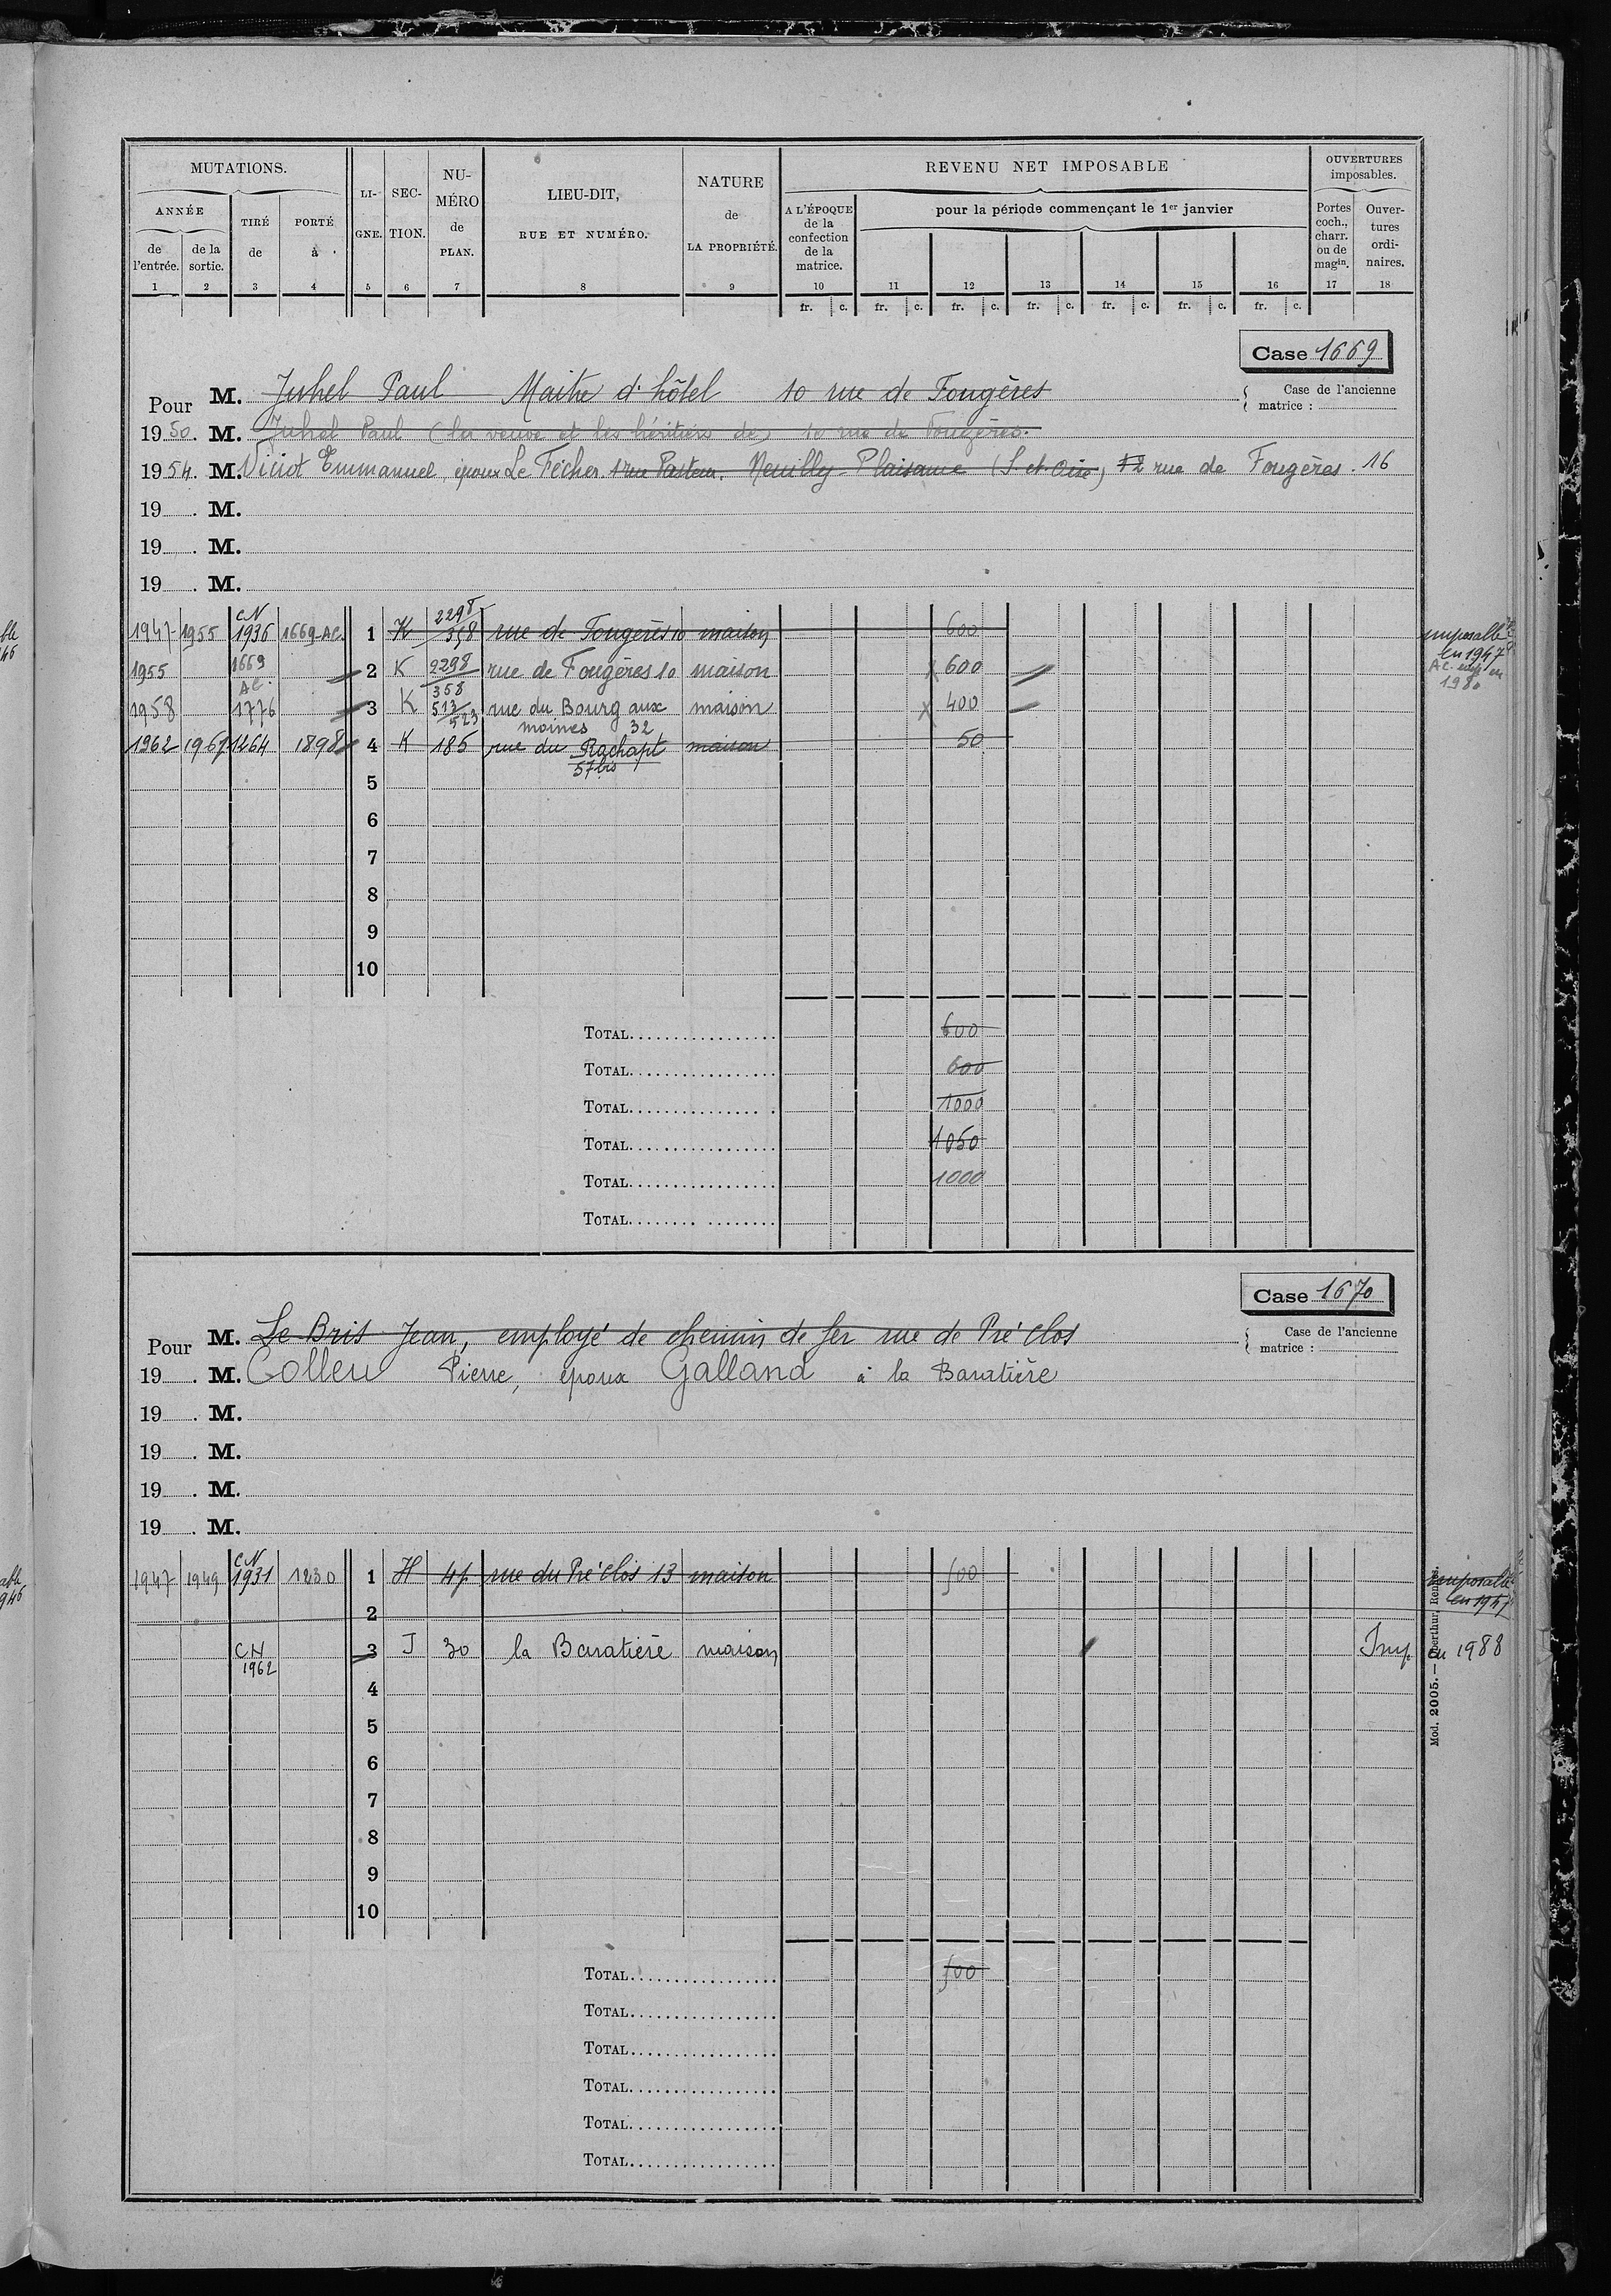 MUTATIONS.
ANNÉE
de l'entrée.
de la sortie.
TIRÉ de
PORTÉ à
LI-GNE.
SEC-TION.
NU-MÉRO de PLAN.
LIEU-DIT, RUE ET NUMÉRO.
NATURE de LA PROPRIÉTÉ.
REVENU NET IMPOSABLE
A L'ÉPOQUE de la confection de la matrice.
pour la période commençant le 1er janvier
OUVERTURES imposables.
Portes coch., charr. ou de magin.
Ouver-tures ordi-naires.
1 2 3 4 5 6 7 8 9 10 11 12 13 14 15 16 17 18
fr. c. fr. c. fr. c. fr. c. fr. c. fr. c. fr. c.
Case 1669
Pour M. Juhel Paul Maitre d'hôtel 10 rue de Fougères
Case de l'ancienne matrice :
1950. M. Juhel Paul (la veuve et les héritiers de) 10 rue de Fougères.
1954. M. Viciot Emmanuel, époux Le Fécher. 1 rue Pasteur. Neuilly-Plaisance (S. et Oise) 12 rue de Fougères. 16
19 . M.
19 . M.
19 . M.
CN 2298
1947 1955 1936 1669-AC. 1 K 358 rue de Fougères 10 maison 600 imposable en 1947
1955 1669 AC. 2 K 2298 358 rue de Fougères 10 maison X 600 AC. imp en 1980
1958 1776 3 K 513 523 rue du Bourg aux moines 32 maison X 400
1962 1967 1264 1898 4 K 185 rue du Rachapt 57 bis maison 50
5
6
7
8
9
10
TOTAL 600
TOTAL 600
TOTAL 1000
TOTAL 1050
TOTAL 1000
TOTAL
Case 1670
Pour M. Le Bris Jean, employé de chemin de fer rue de Pré Clos
Case de l'ancienne matrice :
19 . M. Colleu Pierre, époux Galland à la Baratière
19 . M.
19 . M.
19 . M.
19 . M.
CN
1947 1949 1931 1230 1 H 4p rue du Pré Clos 13 maison 500 imposable en 1947
2
CN 1962 3 J 30 la Baratière maison Imp. en 1988
4
5
6
7
8
9
10
TOTAL 500
TOTAL
TOTAL
TOTAL
TOTAL
TOTAL
Mod. 2005. — Oberthur, Rennes.